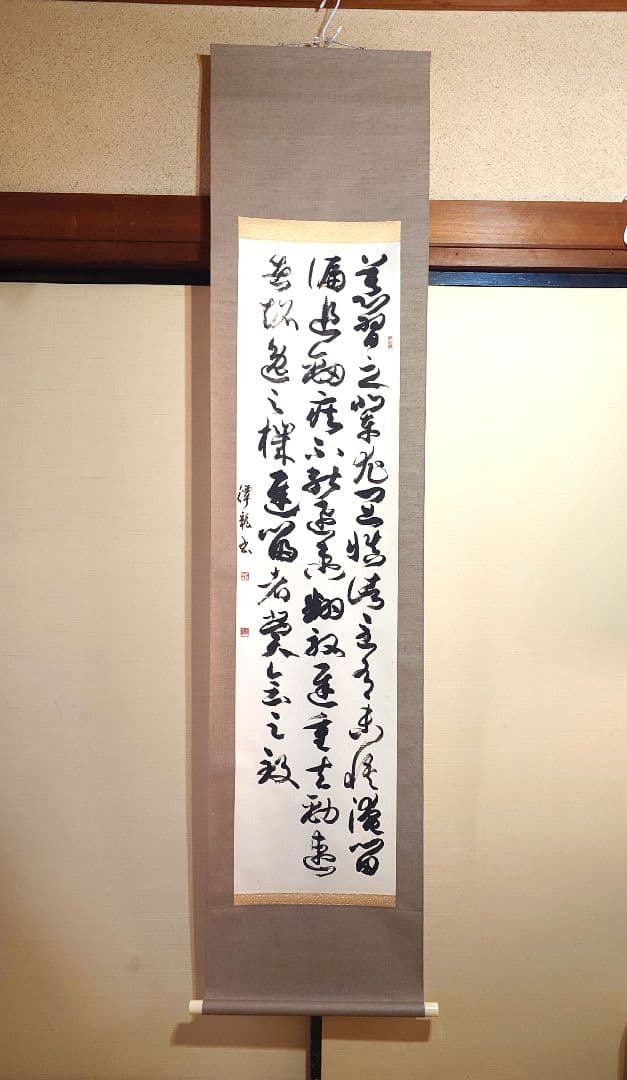 慕習之輩尤宜慎諸至有未悟淹留
偏追勁疾不能迅速翻效遲重夫勁速
者超逸之機遲留者賞會之致
龍書